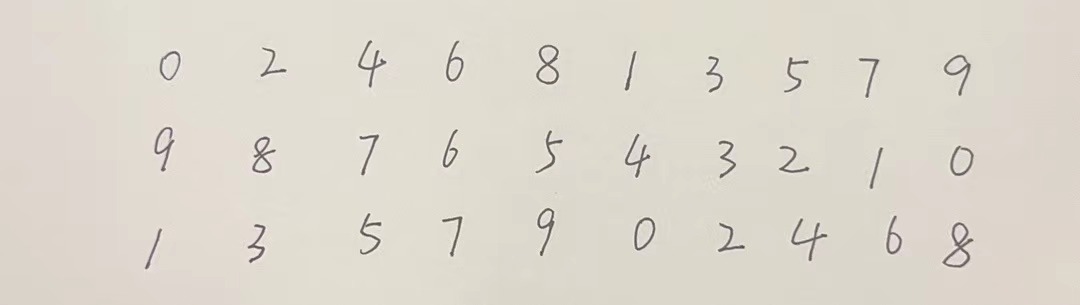 0 2 4 6 8 1 3 5 7 9
9 8 7 6 5 4 3 2 1 0
1 3 5 7 9 0 2 4 6 8